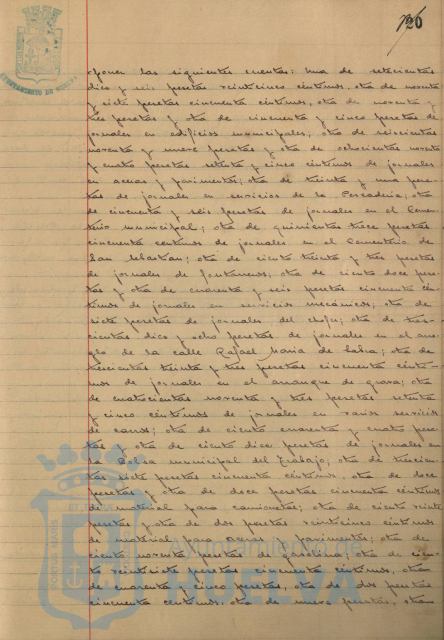 120
AYUNTAMIENTO DE HUELVA
poner las siguientes cuentas: una de setecientas
diez y seis pesetas veinticinco céntimos, otra de noventa
y siete pesetas cincuenta céntimos, otra de noventa y
tres pesetas y otra de cincuenta y cinco pesetas de
jornales en edificios municipales; otra de seiscientas
noventa y nueve pesetas y otra de ochocientas noventa
y cuatro pesetas setenta y cinco céntimos de jornales
en aceras y pavimentos; otra de treinta y una pese-
tas de jornales en servicios de la Pescadería; otra
de cincuenta y seis pesetas de jornales en el Cemen-
terio municipal; otra de quinientas trece pesetas
cincuenta céntimos de jornales en el Cementerio de
San Sebastian; otra de ciento treinta y tres pesetas
de jornales de fontaneros; otra de ciento doce pese-
tas y otra de cuarenta y seis pesetas cincuenta cén-
timos de jornales en servicios mecánicos; otra de
siete pesetas de jornales del chofer; otra de tres-
cientas diez y ocho pesetas de jornales en el arre-
glo de la calle Rafael María de Labra; otra de
trescientas treinta y tres pesetas cincuenta cénti-
mos de jornales en el arranque de grava; otra
de cuatrocientas noventa y tres pesetas setenta
y cinco céntimos de jornales en varios servicios
de carros; otra de ciento cuarenta y cuatro pese-
tas y otra de ciento doce pesetas de jornales en
la Bolsa municipal del Trabajo; otra de trescien-
tas siete pesetas cincuenta céntimos, otra de doce
pesetas y otra de doce pesetas cincuenta céntimos
de material para camionetas; otra de ciento veinte
pesetas y otra de dos pesetas veinticinco céntimos
de material para aceras y pavimentos; otra de
ciento noventa pesetas de gasolina, otra de cien-
to veintisiete pesetas cincuenta céntimos, otra
de cuarenta y cinco pesetas, otra de dos pesetas
cincuenta céntimos, otra de nueve pesetas, otra
PORTUS MARIS ET TERRAE CUSTODIA
Ayuntamiento de
HUELVA